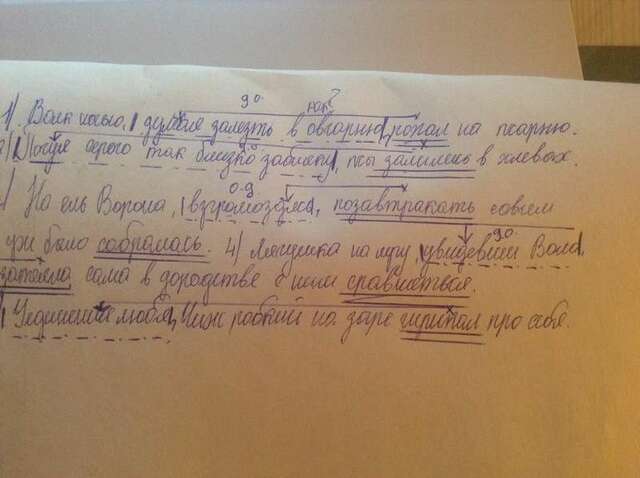 д.о. как?
1) Волк ночью, думая залезть в овчарню, попал на псарню.
2) Почуя серого так близко забияку, псы залились в хлевах.
д.о.
) На ель Ворона взгромоздясь, позавтракать совсем
д.о.
уж было собралась. 4) Лягушка на лугу, увидевши Вола,
затеяла сама в дородстве с ним сравняться.
Уединение любя, Чиж робкий на заре чирикал про себя.